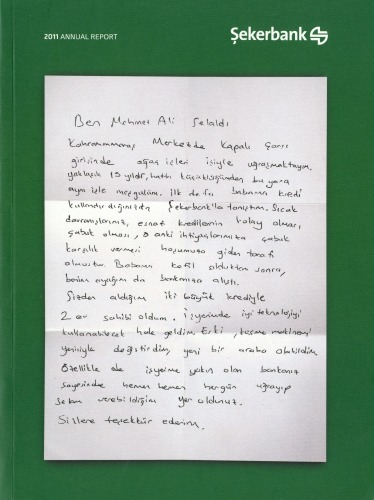 2011 ANNUAL REPORT
Şekerbank
Ben Mehmet Ali Selaldı
Kahramanmaraş Merkezde Kapalı Çarşı
girişinde ağaç işleri işiyle uğraşmaktayım.
yaklaşık 15 yıldır, hatta küçüklüğümden bu yana
aynı işle meşgulüm. İlk defa babamın kredi
kullandırdığınızda Şekerbank'la tanıştım. Sıcak
davranışlarınız, esnaf kredilerinin kolay olması,
çabuk olması, o anki ihtiyaçlarımıza çabuk
karşılık vermesi hoşumuza giden tarafı
olmuştur. Babama kefil olduktan sonra,
benim ayağım da bankanıza alıştı.
Sizden aldığım iki büyük krediyle
2 ev sahibi oldum. İşyerimde iyi teknolojiyi
kullanabilecek hale geldim. Eski, kesme makinemi
yenisiyle değiştirdim, yeni bir araba alabildim.
Özellikle de işyerime yakın olan bankanız
sayesinde hemen hemen hergün uğrayıp
selam verebildiğim yer oldunuz.
Sizlere teşekkür ederim.